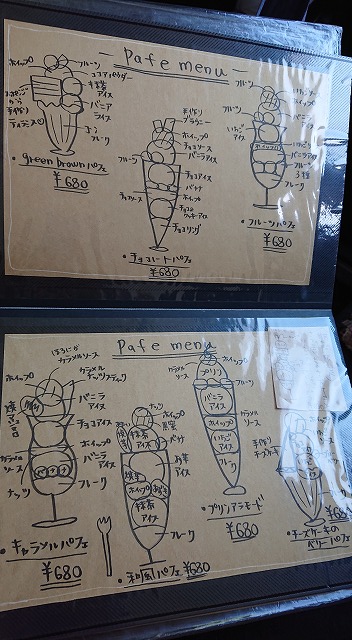 Pafe menu
ホイップ
フルーツ
ココアパウダー
抹茶アイス
バニラアイス
手作り
フレーク
・green brownパフェ
¥680
手作りブラウニー
ホイップ
チョコソース
バニラアイス
フルーツ
チョコアイス
バナナ
チョコソース
ホイップ
チョコクッキーアイス
チョコリング
・チョコレートパフェ
¥680
フルーツ
いちごソース
ホイップ
バニラアイス
いちごアイス
ホイップ
バニラアイス
フルーツ3種
フレーク
・フルーツパフェ
¥680
Pafe menu
ほろにがカラメルソース
ホイップ
カラメルナッツスティック
バニラアイス
チョコアイス
ホイップ
カラメルソース
バニラアイス
バナナ
ナッツ
フレーク
・キャラメルパフェ
¥680
ナッツ
ホイップ
黒蜜
抹茶アイス
バナナ
お芋アイス
ホイップ
あずき
抹茶アイス
フレーク
・和風パフェ ¥680
ホイップ
カラメルソース
プリン
フルーツ
バニラアイス
カラメルソース
ホイップ
いちごアイス
フレーク
・プリンアラモード
¥680
手作りチーズケーキ
¥680
・チーズケーキのベリーパフェ